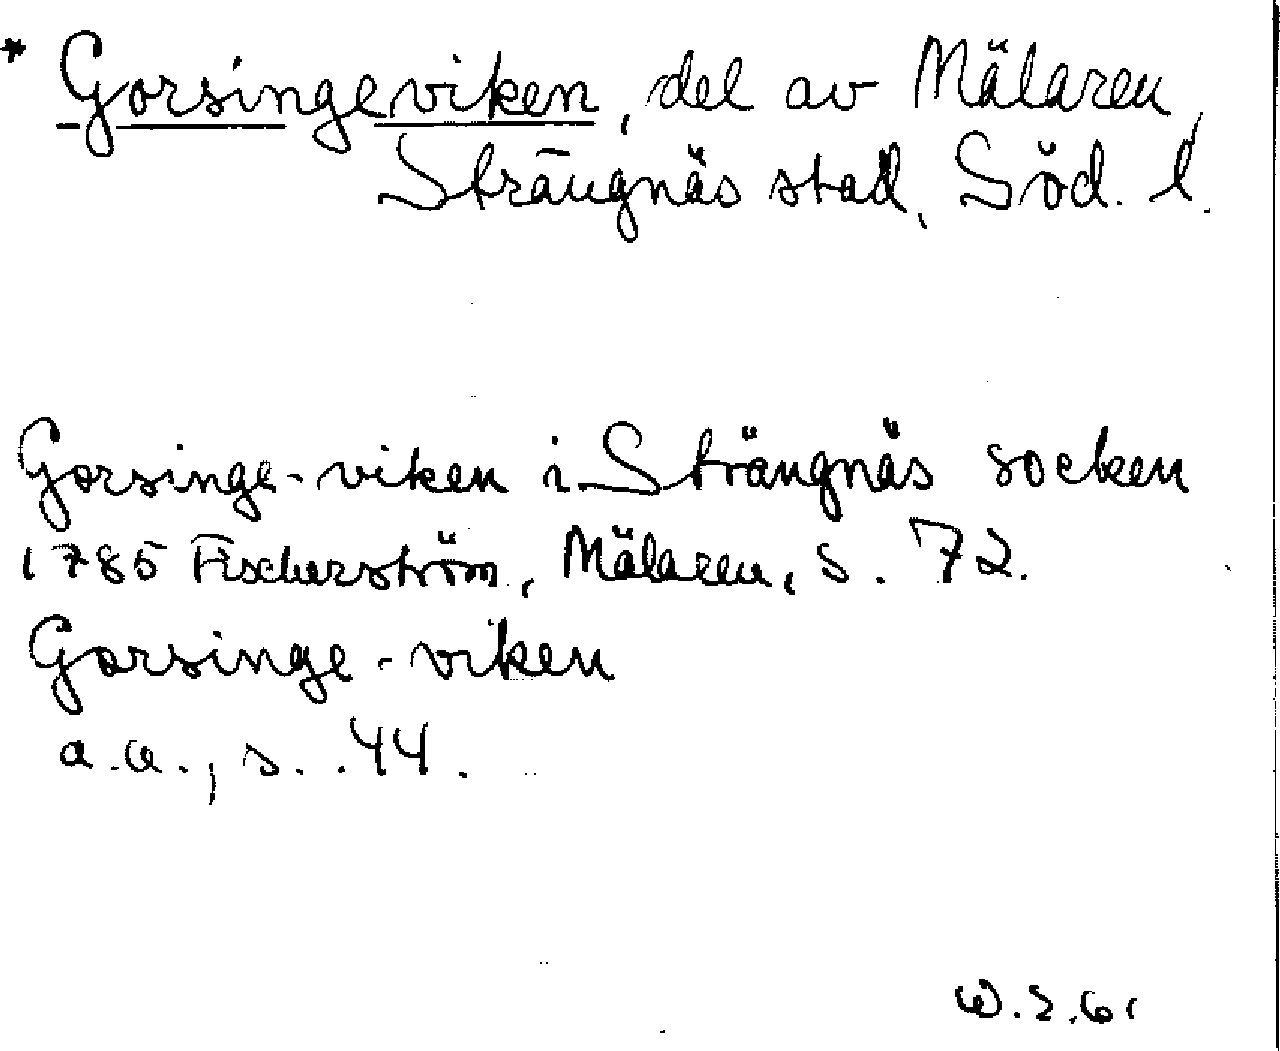 * Gorsingeviken, del av Mälaren
Strängnäs stad, Söd. l.
Gorsinge-viken i Strängnäs socken
1785 Fischerström, Mälaren, s. 72.
Gorsinge-viken
a.a., s. 44.
W.S.61